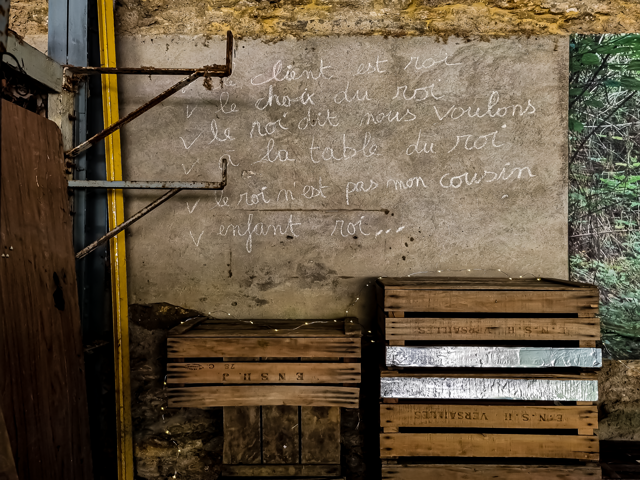 le client est roi
✓ le choix du roi
✓ le roi dit nous voulons
✓ à la table du roi
✓ le roi n'est pas mon cousin
✓ enfant roi...
E.N.S.H VERSAILLES
E N S H
E.N.S.H VERSAILLES